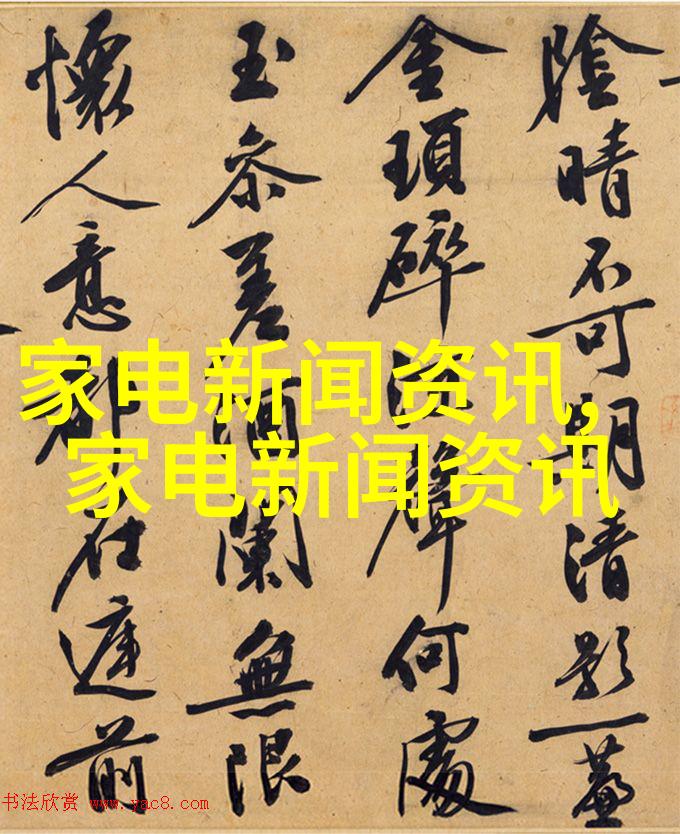 陰晴不可期清影一
金瑣碎聲何處
玉參差酒闌無限
懷人意都在前
家电新闻资讯,
家电新闻资讯
书法欣赏 www.yac8.com